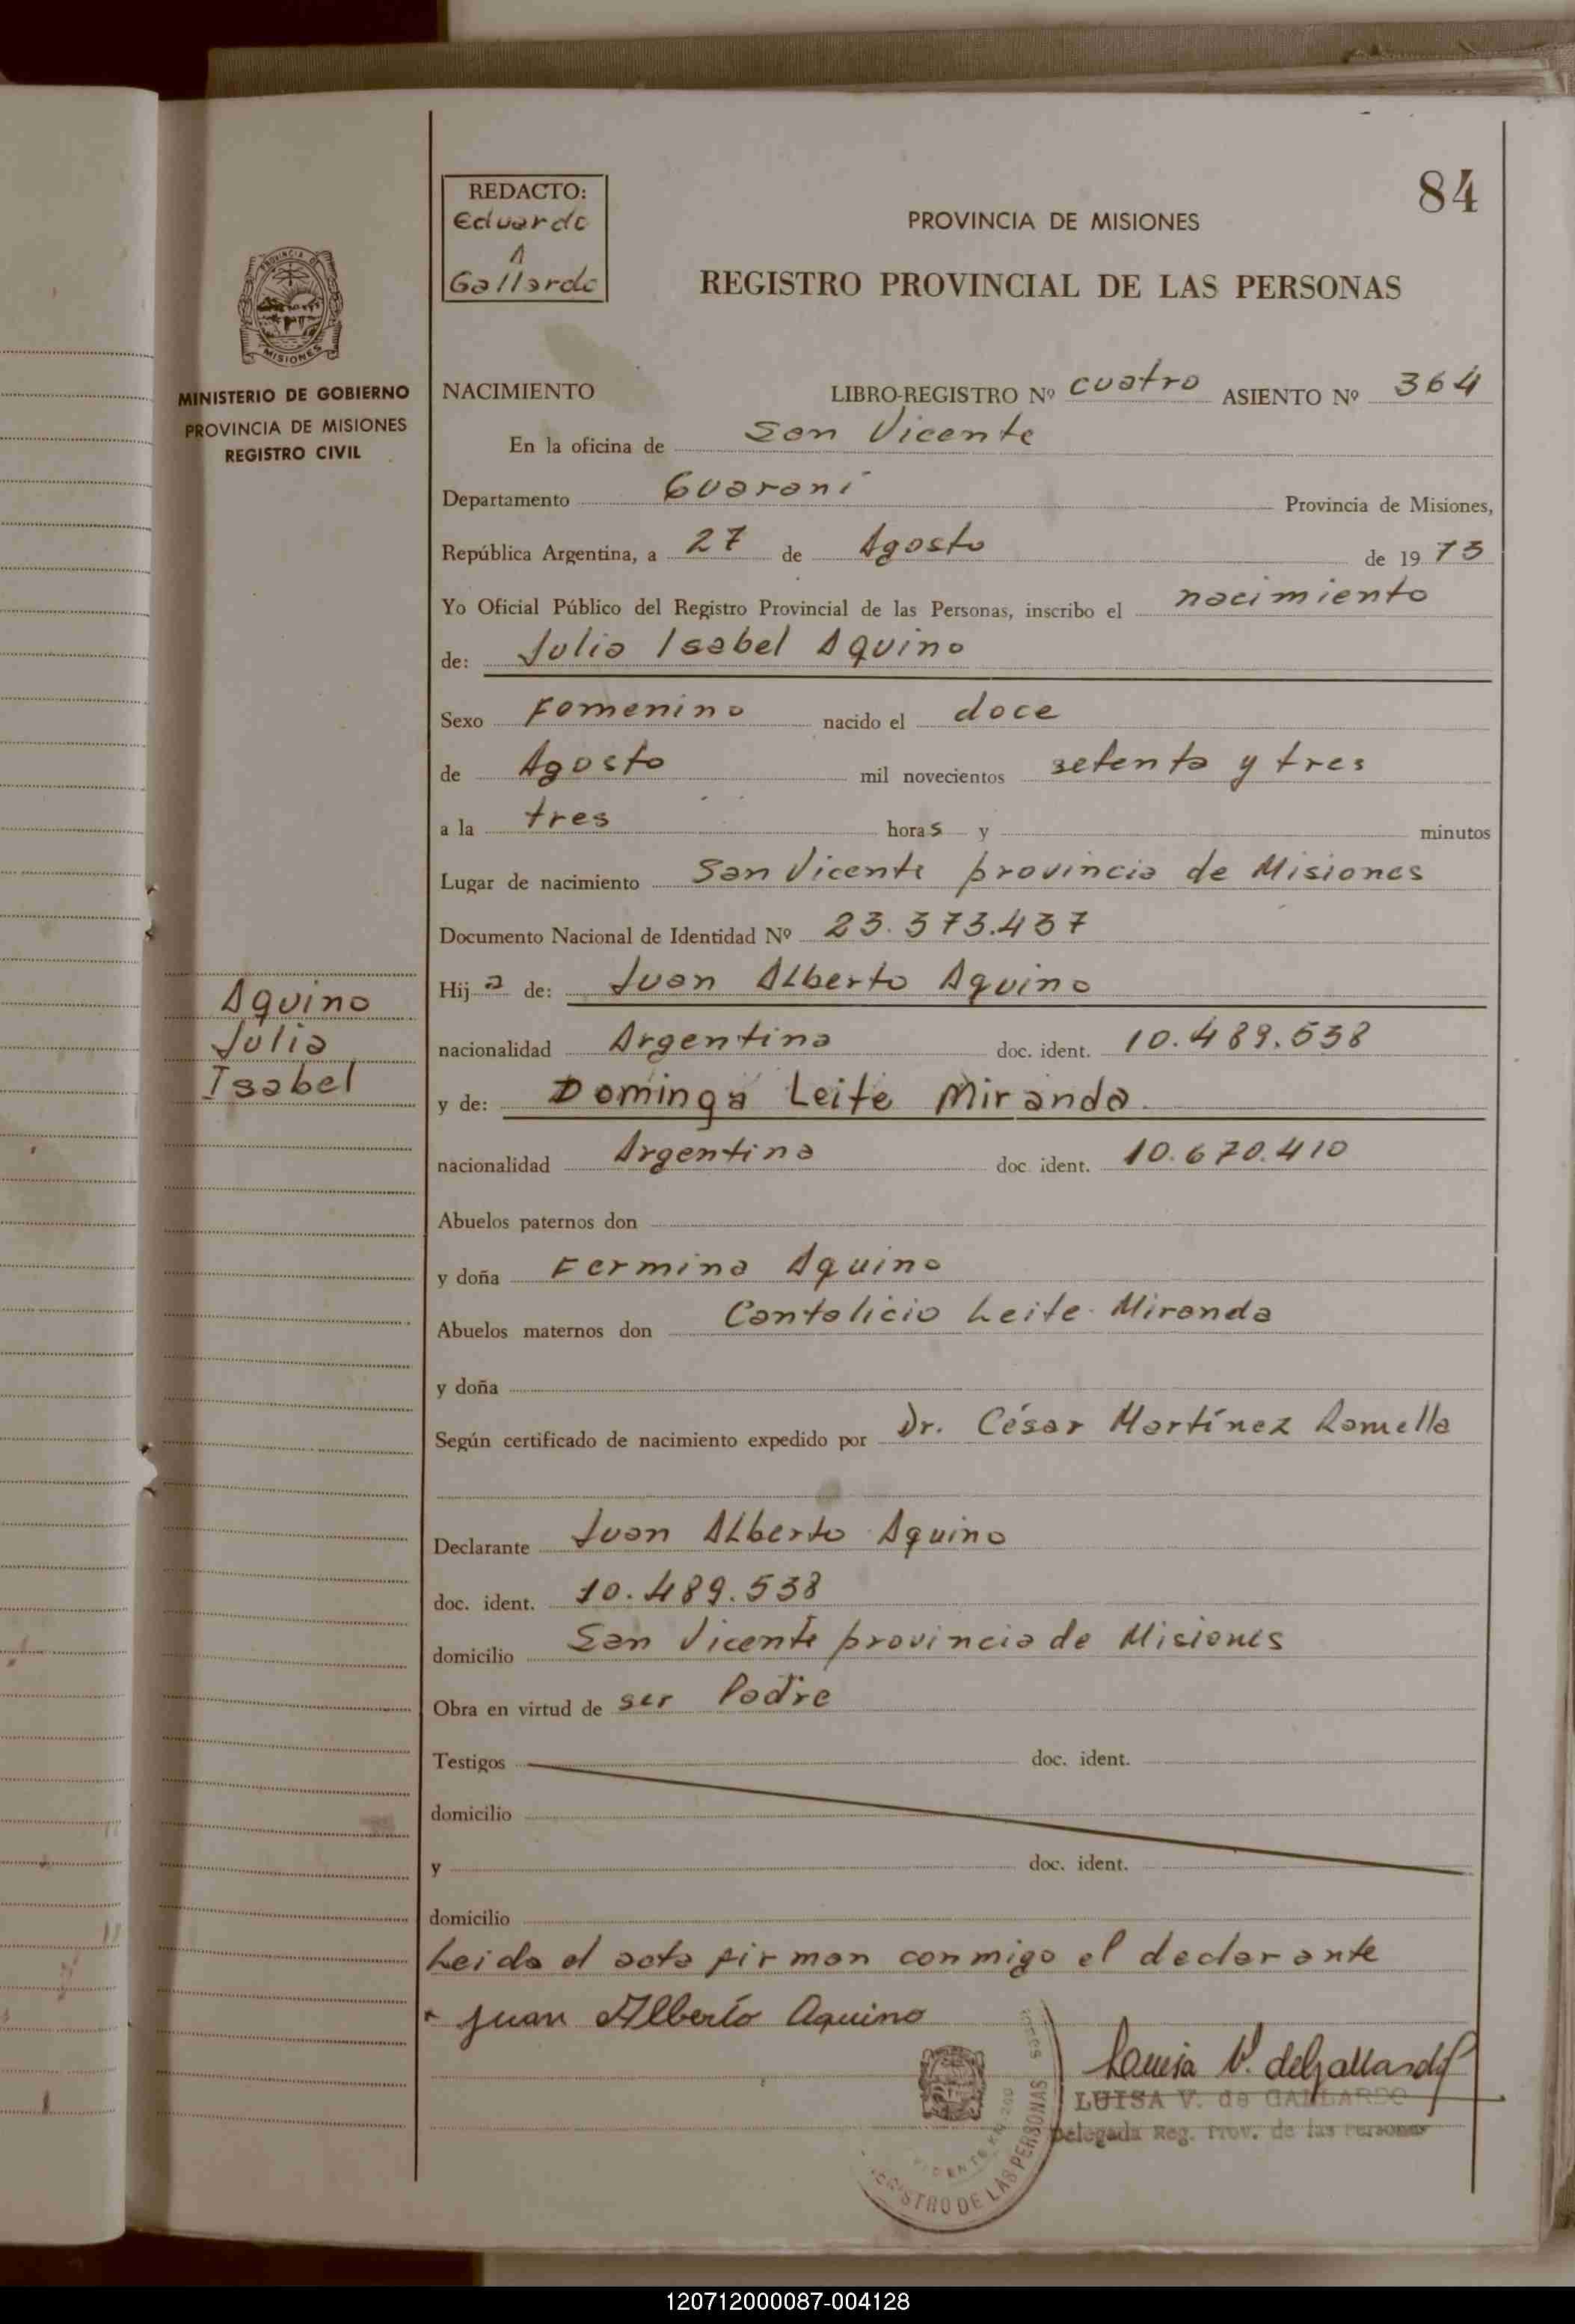 84
REDACTO:
Eduardo
A
Gallardo
PROVINCIA DE MISIONES
REGISTRO PROVINCIAL DE LAS PERSONAS
PROVINCIA DE
MISIONES
MINISTERIO DE GOBIERNO
PROVINCIA DE MISIONES
REGISTRO CIVIL
NACIMIENTO LIBRO-REGISTRO Nº cuatro ASIENTO Nº 364
En la oficina de San Vicente
Departamento Guaraní Provincia de Misiones,
República Argentina, a 27 de Agosto de 1973
Yo Oficial Público del Registro Provincial de las Personas, inscribo el nacimiento
de: Julia Isabel Aquino
Sexo Femenino nacido el doce
de Agosto mil novecientos setenta y tres
a la tres horas y minutos
Lugar de nacimiento San Vicente provincia de Misiones
Documento Nacional de Identidad Nº 23.373.437
Hija de: Juan Alberto Aquino
nacionalidad Argentina doc. ident. 10.489.538
y de: Dominga Leite Miranda
nacionalidad Argentina doc. ident. 10.670.410
Abuelos paternos don
y doña Fermina Aquino
Abuelos maternos don Cantalicio Leite Miranda
y doña
Según certificado de nacimiento expedido por Dr. César Martínez Ramella
Declarante Juan Alberto Aquino
doc. ident. 10.489.538
domicilio San Vicente provincia de Misiones
Obra en virtud de ser Padre
Testigos doc. ident.
domicilio
y doc. ident.
domicilio
Leida el acta firman conmigo el declarante
Juan Alberto Aquino
Aquino
Julia
Isabel
Luisa V. de Gallardo
LUISA V. de GALLARDO
Delegada Reg. Prov. de las Personas
REGISTRO DE LAS PERSONAS
120712000087-004128